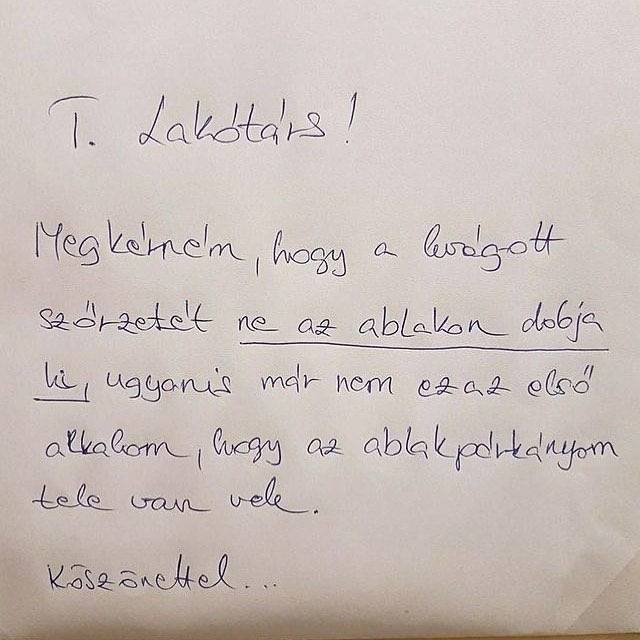 T. Lakótárs!
Megkérném, hogy a levágott
szőrzetét ne az ablakon dobja
ki, ugyanis már nem ez az első
alkalom, hogy az ablakpárkányom
tele van vele.
Köszönettel...